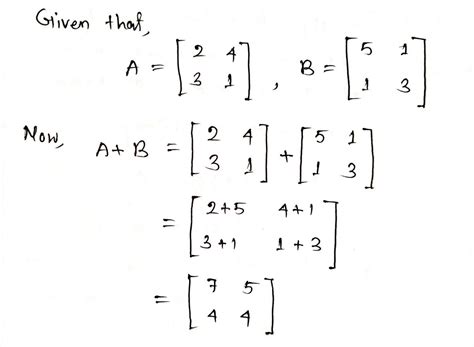 Given that,
A = [2 4; 3 1], B = [5 1; 1 3]
Now, A+B = [2 4; 3 1] + [5 1; 1 3]
= [2+5 4+1; 3+1 1+3]
= [7 5; 4 4]